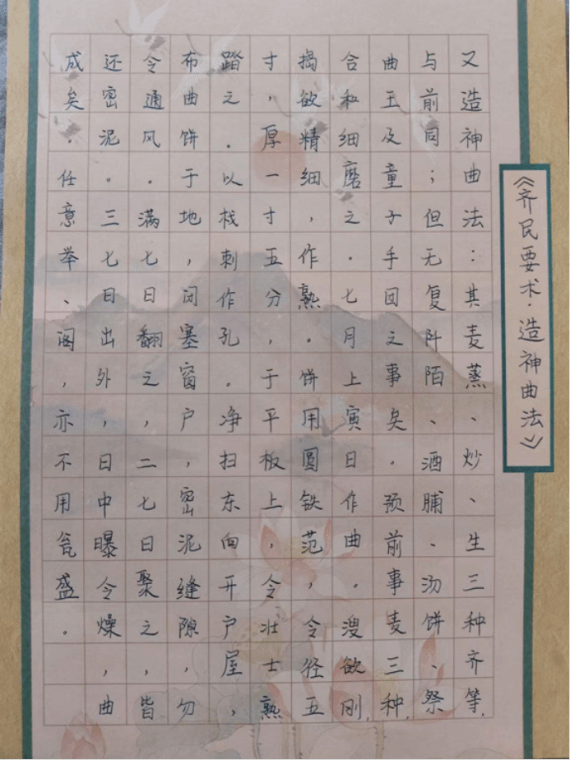 《齐民要术·造神曲法》
又造神曲法：其麦蒸、炒、生三种齐等，
与前同；但无复阡陌、酒脯、汤饼、祭
曲王及童子手团之事矣。预前事麦三种，
合和细磨之。七月上寅日作曲。溲欲刚，
捣欲精细，作熟。饼用圆铁范，令径五
寸，厚一寸五分，于平板上，令壮士熟
踏之。以杙刺作孔。净扫东向开户屋，
布曲饼于地，闭塞窗户，密泥缝隙，勿
令通风。满七日翻之，二七日聚之，皆
还密泥。三七日出外，日中曝令燥，曲
成矣。任意举、阁，亦不用瓮盛。